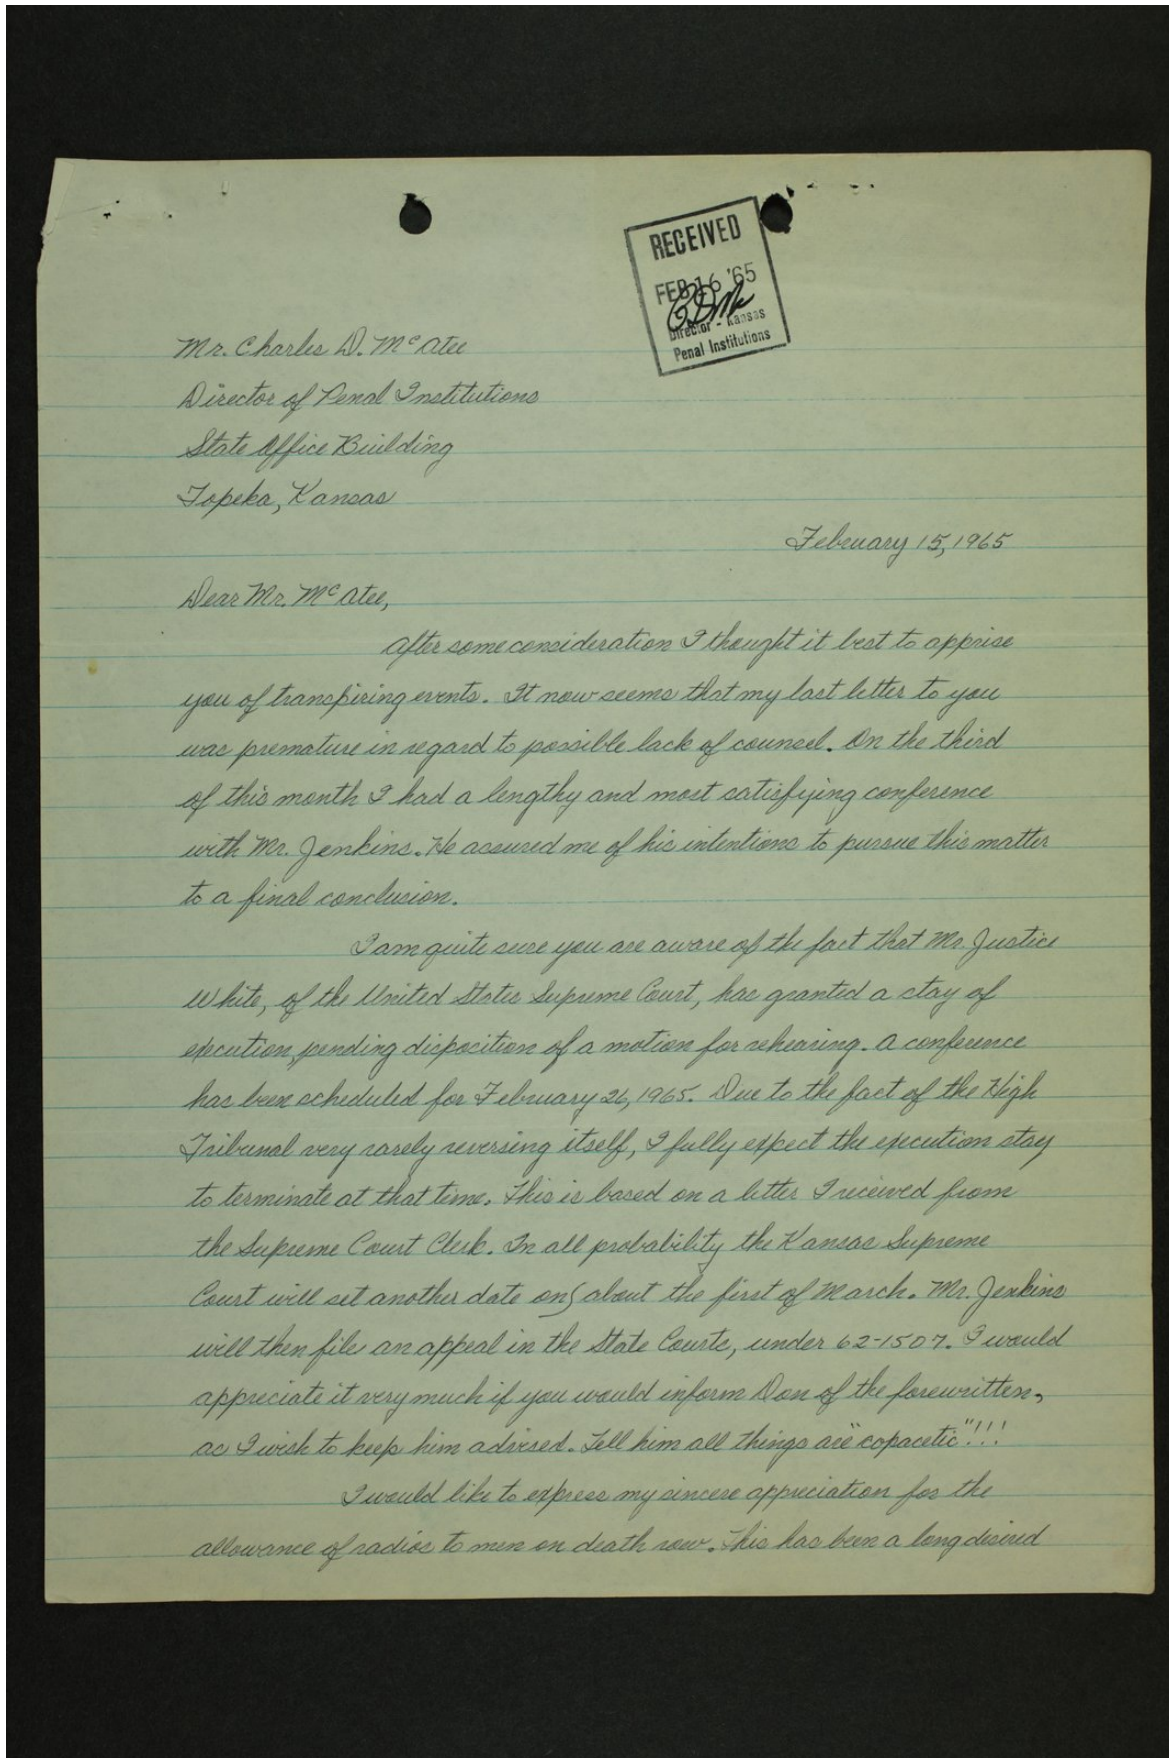 RECEIVED
FEB 16 '65
Director - Kansas
Penal Institutions
Mr. Charles D. McAtee
Director of Penal Institutions
State Office Building
Topeka, Kansas
February 15, 1965
Dear Mr. McAtee,
After some consideration I thought it best to apprise
you of transpiring events. It now seems that my last letter to you
was premature in regard to possible lack of counsel. On the third
of this month I had a lengthy and most satisfying conference
with Mr. Jenkins. He assured me of his intentions to pursue this matter
to a final conclusion.
I am quite sure you are aware of the fact that Mr. Justice
White, of the United States Supreme Court, has granted a stay of
execution, pending disposition of a motion for rehearing. A conference
has been scheduled for February 26, 1965. Due to the fact of the High
Tribunal very rarely reversing itself, I fully expect the execution stay
to terminate at that time. This is based on a letter I received from
the Supreme Court Clerk. In all probability the Kansas Supreme
Court will set another date on, about the first of March. Mr. Jenkins
will then file an appeal in the State Courts, under 62-1507. I would
appreciate it very much if you would inform Don of the forewritten,
as I wish to keep him advised. Tell him all things are "copacetic"!!!
I would like to express my sincere appreciation for the
allowance of radios to men on death row. This has been a long desired